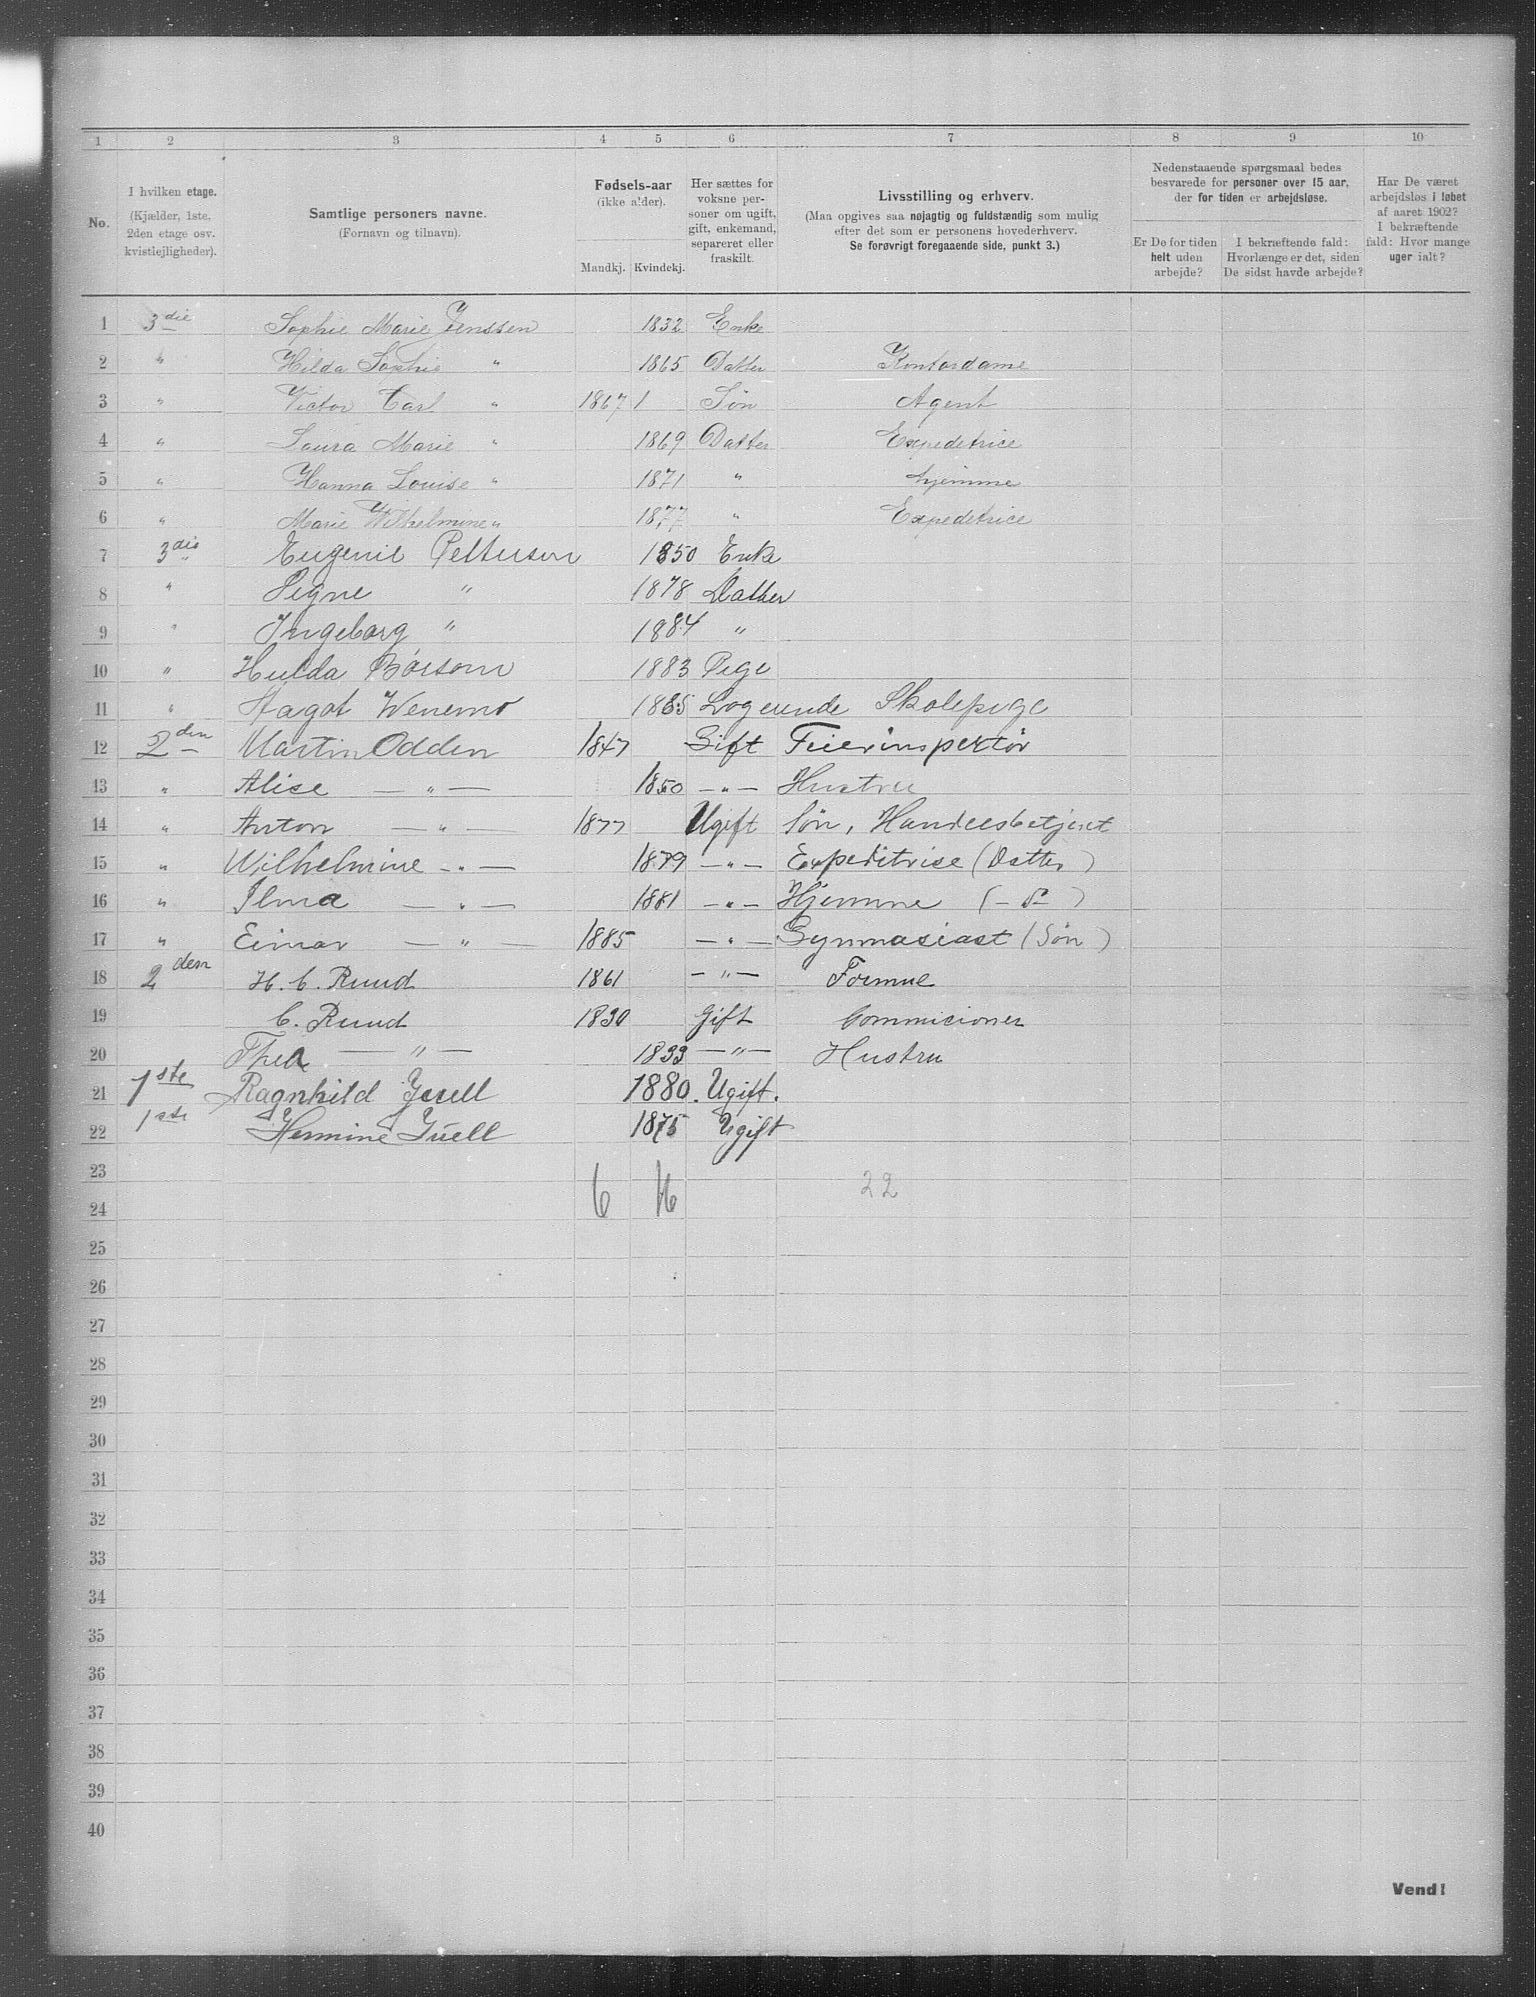 1 2 3 4 5 6 7 8 9 10
No.
I hvilken etage.
(Kjælder, 1ste,
2den etage osv.
kvistlejligheder).
Samtlige personers navne.
(Fornavn og tilnavn).
Fødsels-aar
(ikke alder).
Mandkj. Kvindekj.
Her sættes for
voksne per-
soner om ugift,
gift, enkemand,
separeret eller
fraskilt.
Livsstilling og erhverv.
(Maa opgives saa nøjagtig og fuldstændig som mulig
efter det som er personens hovederhverv.
Se forøvrigt foregaaende side, punkt 3.)
Nedenstaaende spørgsmaal bedes
besvarede for personer over 15 aar,
der for tiden er arbejdsløse.
Er De for tiden
helt uden
arbejde?
I bekræftende fald:
Hvorlænge er det, siden
De sidst havde arbejde?
Har De været
arbejdsløs i løbet
af aaret 1902?
I bekræftende
fald: Hvor mange
uger ialt?
1 3die Sophie Marie Jenssen 1832 Enke
2 " Hilda Sophie " 1865 Datter Kontordame
3 " Victor Carl " 1867 1 Søn Agent
4 " Laura Marie " 1869 Datter Expeditrice
5 " Hanna Louise " 1871 " hjemme
6 " Marie Wilhelmine " 1877 " Expeditrice
7 3die Eugenie Pettersen 1850 Enke
8 " Signe " 1878 Datter
9 " Ingeborg " 1884 "
10 " Hulda Børsom 1883 Pige
11 " Aagot Wenemo 1885 Logerende Skolepige
12 2den Martin Odden 1847 Gift Feierinspektør
13 " Alise — " — 1850 — " — Hustru
14 " Anton — " — 1877 Ugift Søn, Handelsbetjent
15 " Wilhelmine — " — 1879 — " — Expeditrise (Datter)
16 " Ilma — " — 1881 — " — Hjemme (— do —)
17 " Einar — " — 1885 — " — Gynmasiast (Søn)
18 2den H. C. Ruud 1861 — " — Formue
19 C. Ruud 1830 Gift Commicioner
20 Thea — " — 1833 — " — Hustru
21 1ste Ragnhild Juell 1880. Ugift.
22 1ste Hermine Juell 1875 Ugift
23
6 16 22
24
25
26
27
28
29
30
31
32
33
34
35
36
37
38
39
40
Vend!